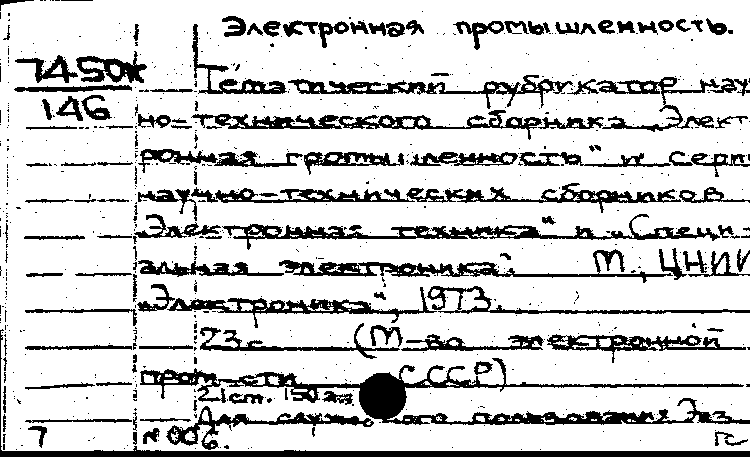 Электронная промышленность.
7450ж
146
Тематический рубрикатор науч
но-технического сборника „Элект
ронная промышленность" и серий
научно-технических сборников
„Электронная техника" и „Специ-
альная электроника". М., ЦНИИ
„Электроника", 1973.
23с. (М-во электронной
пром-сти СССР).
21ст. 150
Для пользования Экз
7 №006.